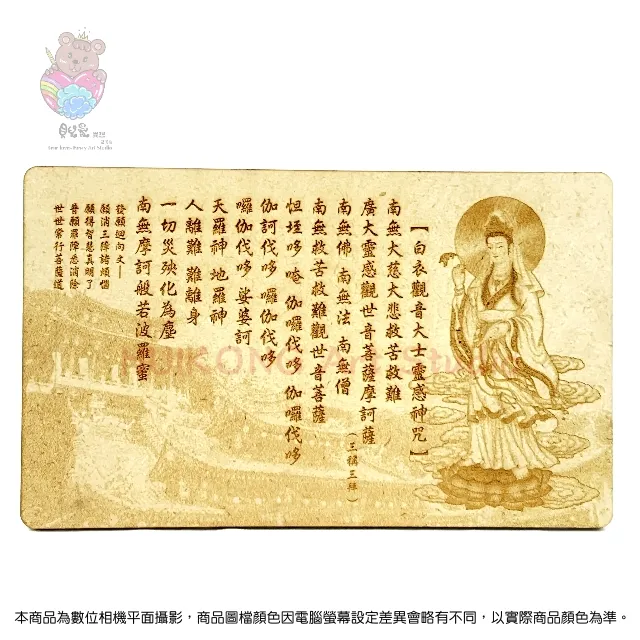 【白衣觀音大士靈感神咒】
南無大慈大悲救苦救難
廣大靈感觀世音菩薩摩訶薩
(三稱三拜)
南無佛 南無法 南無僧
南無救苦救難觀世音菩薩
怛垤哆 唵 伽囉伐哆 伽囉伐哆
伽訶伐哆 囉伽伐哆
囉伽伐哆 娑婆訶
天羅神 地羅神
人離難 難離身
一切災殃化為塵
南無摩訶般若波羅蜜
發願迴向文—
願消三障諸煩惱
願得智慧真明了
普願罪障悉消除
世世常行菩薩道
本商品為數位相機平面攝影，商品圖檔顏色因電腦螢幕設定差異會略有不同，以實際商品顏色為準。